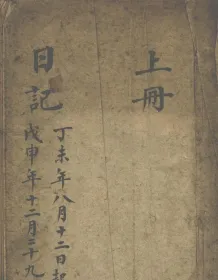 上冊
日記
丁未年八月十二日起
戊申年十二月二十九